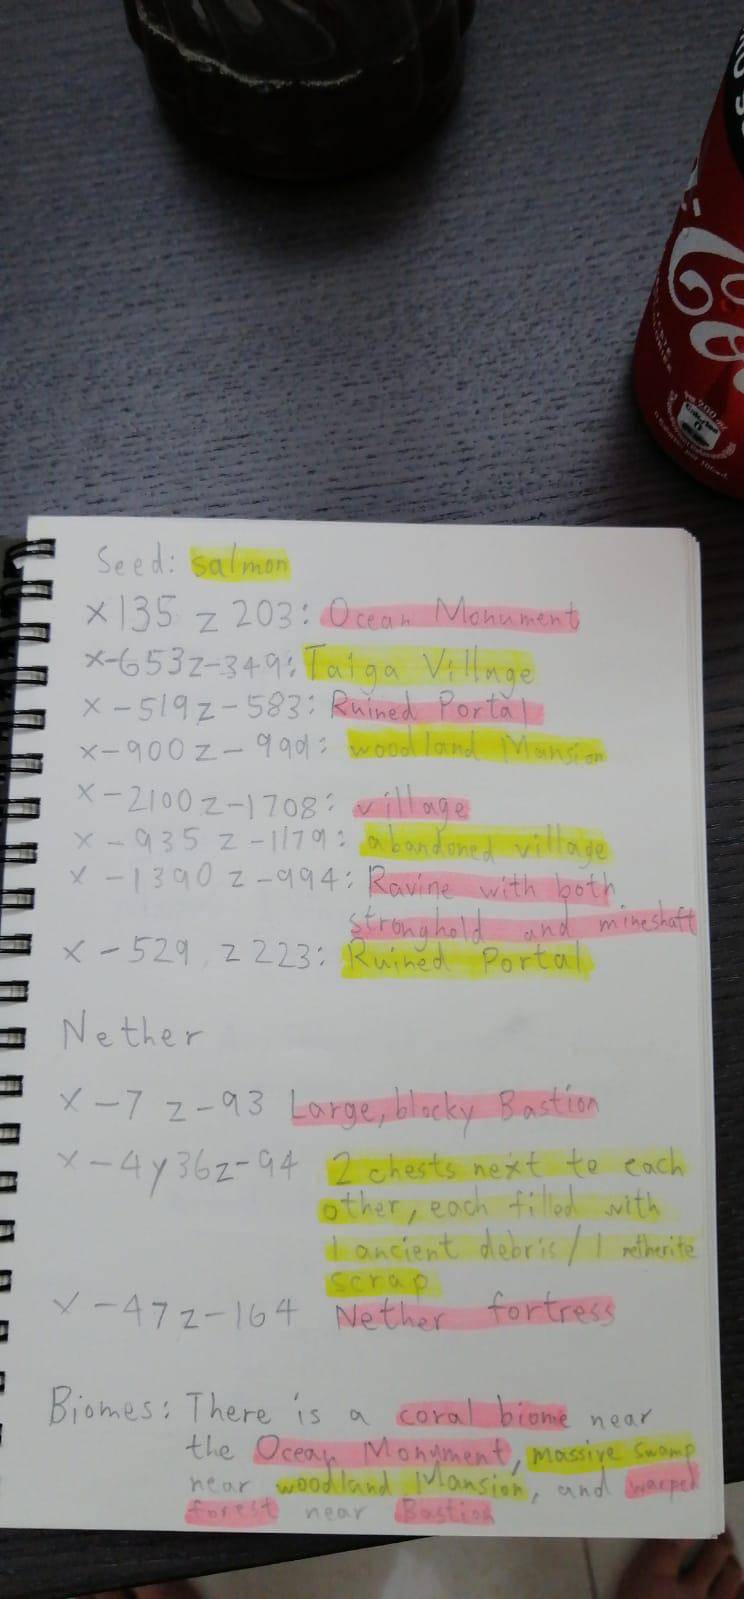 Seed: salmon
x135 z 203: Ocean Monument
x-653z-349: Taiga Village
x -519z-583: Ruined Portal
x-900z-990: woodland Mansion
x-2100z-1708: village
x -935 z -1179: abandoned village
x -1390 z-994: Ravine with both
stronghold and mineshaft
x -529 z223: Ruined Portal
Nether
x -7 z-93 Large, blocky Bastion
x-4y36z-94 2 chests next to each
other, each filled with
1 ancient debris/1 netherite
scrap
x -47z-164 Nether fortress
Biomes: There is a coral biome near
the Ocean Monument, massive swamp
near woodland Mansion, and warped
forest near Bastion